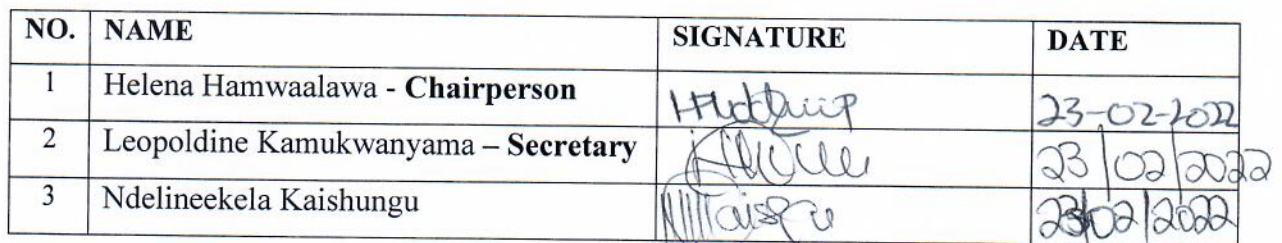 NO. NAME SIGNATURE DATE
1 Helena Hamwaalawa - Chairperson 23-02-2022
2 Leopoldine Kamukwanyama – Secretary 23/02/2022
3 Ndelineekela Kaishungu 23/02/2022